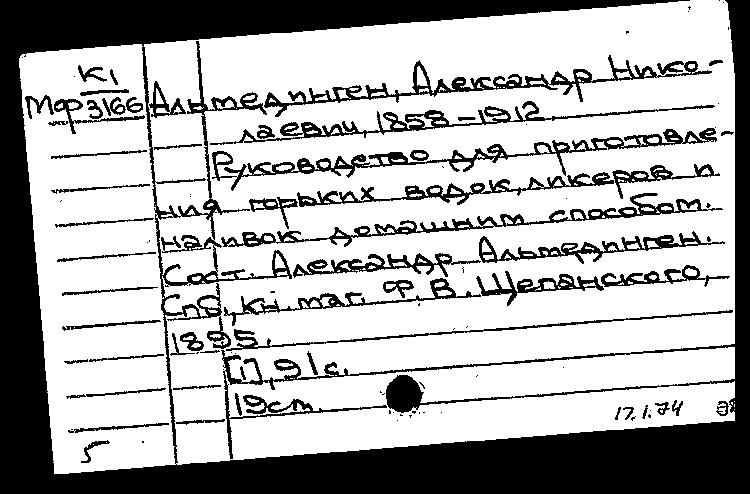 К1
Мф 3166 Альмединген, Александр Нико-
лаевич, 1858-1912.
Руководство для приготовле-
ния горьких водок, ликеров и
наливок домашним способом.
Сост. Александр Альмединген.
Спб., кн. маг. Ф. В. Щепанского,
1895.
[1], 91 с.
19 см.
17.1.74
5